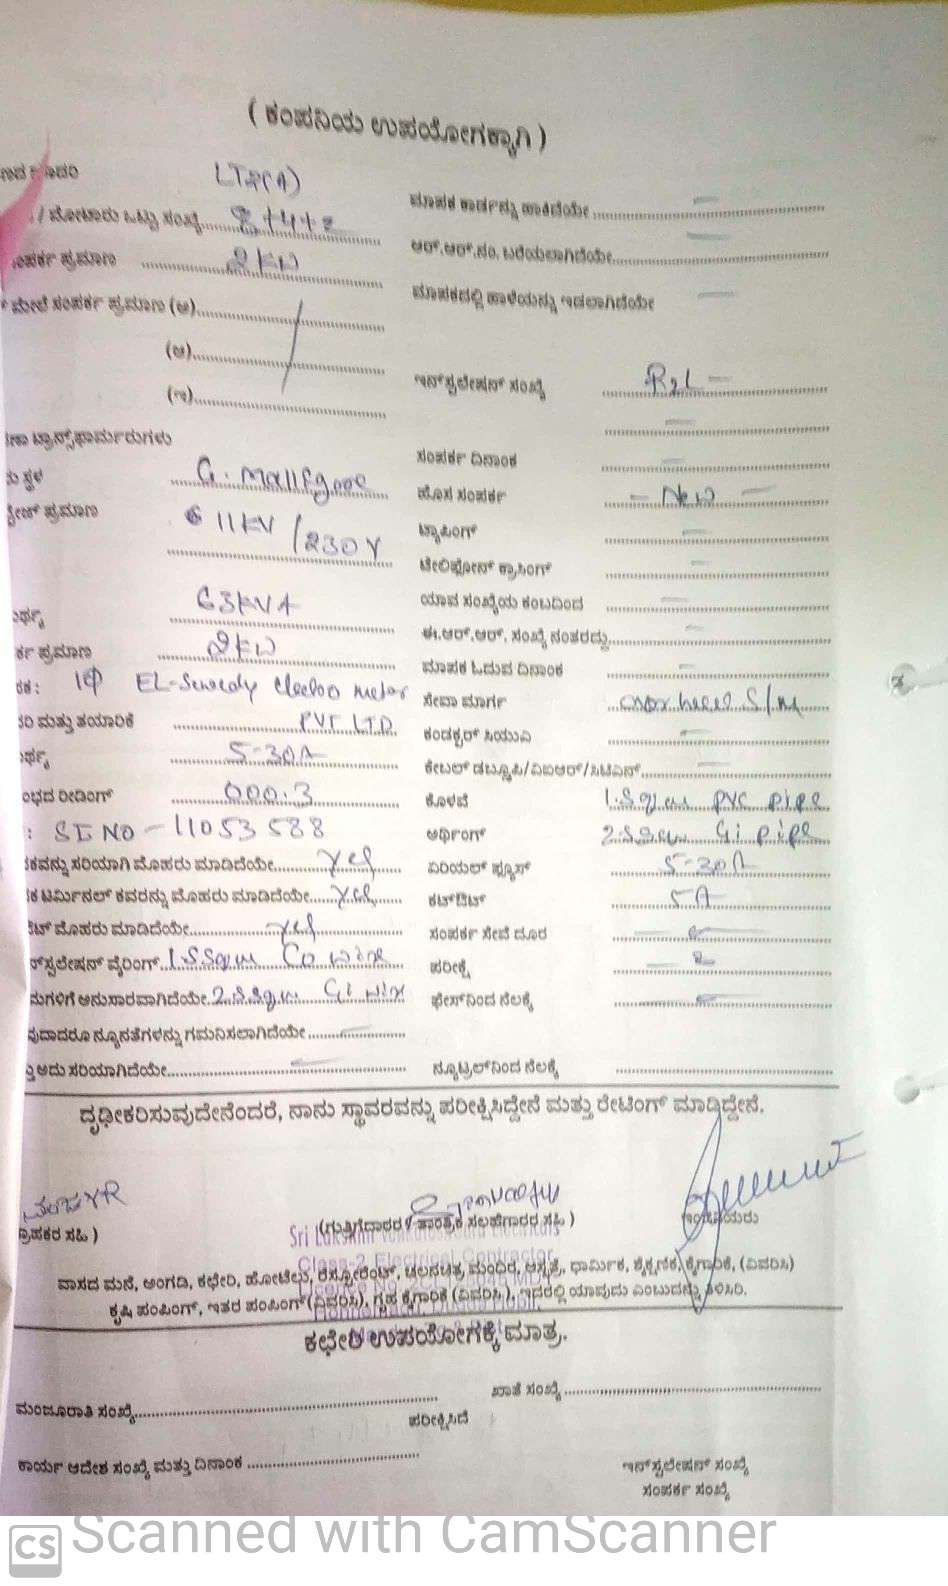 ( ಕಂಪನಿಯ ಉಪಯೋಗಕ್ಕಾಗಿ )
LT2(A)
/ ಮೋಟಾರು ಒಟ್ಟು ಸಂಖ್ಯೆ 2+4+2
ಪ್ರಮಾಣ 2KW
ಮೇಲೆ ಸಂಪರ್ಕ ಪ್ರಮಾಣ (ಅ)
(ಆ)
(ಇ)
ಟ್ರಾನ್ಸ್‌ಫಾರ್ಮರುಗಳು
ಸ್ಥಳ G.
ಪ್ರಮಾಣ 11KV / 230V
63KVA
ಪ್ರಮಾಣ 2KW
1Φ EL-Sewedy Electro meter
ಮತ್ತು ತಯಾರಿಕೆ PVT LTD
5-30A
ರೀಡಿಂಗ್ 000.3
: SL NO - 11053588
ಸರಿಯಾಗಿ ಮೊಹರು ಮಾಡಿದೆಯೇ yes
ಟರ್ಮಿನಲ್ ಕವರನ್ನು ಮೊಹರು ಮಾಡಿದೆಯೇ yes
ಮೊಹರು ಮಾಡಿದೆಯೇ yes
ವೈರಿಂಗ್ 1.5Sqm Co wire
ಅನುಸಾರವಾಗಿದೆಯೇ 2.5Sqm Gi wire
ನ್ಯೂನತೆಗಳನ್ನು ಗಮನಿಸಲಾಗಿದೆಯೇ
ಅದು ಸರಿಯಾಗಿದೆಯೇ
ಮಾಪಕ ಕಾರ್ಡನ್ನು ಹಾಕಿದೆಯೇ
ಆರ್.ಆರ್.ನಂ. ಬರೆಯಲಾಗಿದೆಯೇ
ಮಾಪಕದಲ್ಲಿ ಹಾಳೆಯನ್ನು ಇಡಲಾಗಿದೆಯೇ
ಇನ್‌ಸ್ಟಲೇಷನ್ ಸಂಖ್ಯೆ
ಸಂಪರ್ಕ ದಿನಾಂಕ
ಹೊಸ ಸಂಪರ್ಕ - New -
ಟ್ಯಾಪಿಂಗ್
ಟೆಲಿಫೋನ್ ಕ್ರಾಸಿಂಗ್
ಯಾವ ಸಂಖ್ಯೆಯ ಕಂಬದಿಂದ
ಈ.ಆರ್.ಆರ್. ಸಂಖ್ಯೆ ನಂತರದ್ದು
ಮಾಪಕ ಓದುವ ದಿನಾಂಕ
ಸೇವಾ ಮಾರ್ಗ over head S/M
ಕಂಡಕ್ಟರ್ ಸಿಯುಎ
ಕೇಬಲ್ ಡಬ್ಲ್ಯೂಪಿ/ವಿಐಆರ್/ಸಿಟಿಎಸ್
ಕೊಳವೆ 1.5qm PVC pipe
ಅರ್ಥಿಂಗ್ 2.5Sqm Gi pipe
ಏರಿಯಲ್ ಫ್ಯೂಸ್ 5-30A
ಕಟ್‌ಔಟ್ 5A
ಸಂಪರ್ಕ ಸೇವೆ ದೂರ
ಪರೀಕ್ಷೆ
ಫೇಸ್‌ನಿಂದ ನೆಲಕ್ಕೆ
ನ್ಯೂಟ್ರಲ್‌ನಿಂದ ನೆಲಕ್ಕೆ
ದೃಢೀಕರಿಸುವುದೇನೆಂದರೆ, ನಾನು ಸ್ಥಾವರವನ್ನು ಪರೀಕ್ಷಿಸಿದ್ದೇನೆ ಮತ್ತು ರೇಟಿಂಗ್ ಮಾಡಿದ್ದೇನೆ.
ಸಹಿ )
(ಗುತ್ತಿಗೆದಾರರ / ತಾಂತ್ರಿಕ ಸಲಹೆಗಾರರ ಸಹಿ )
Class-2 Electrical Contractor
ವಾಸದ ಮನೆ, ಅಂಗಡಿ, ಕಛೇರಿ, ಹೋಟೆಲು, ರೆಸ್ಟೋರೆಂಟ್, ಚಲನಚಿತ್ರ ಮಂದಿರ, ಆಸ್ಪತ್ರೆ, ಧಾರ್ಮಿಕ, ಶೈಕ್ಷಣಿಕ, ಕೈಗಾರಿಕೆ, (ವಿವರಿಸಿ)
ಕೃಷಿ ಪಂಪಿಂಗ್, ಇತರ ಪಂಪಿಂಗ್ (ವಿವರಿಸಿ), ಗೃಹ ಕೈಗಾರಿಕೆ (ವಿವರಿಸಿ), ಇದರಲ್ಲಿ ಯಾವುದು ಎಂಬುದನ್ನು ತಿಳಿಸಿರಿ.
ಕಛೇರಿ ಉಪಯೋಗಕ್ಕೆ ಮಾತ್ರ.
ಮಂಜೂರಾತಿ ಸಂಖ್ಯೆ
ಖಾತೆ ಸಂಖ್ಯೆ
ಪರೀಕ್ಷಿಸಿದೆ
ಕಾರ್ಯ ಆದೇಶ ಸಂಖ್ಯೆ ಮತ್ತು ದಿನಾಂಕ
ಇನ್‌ಸ್ಟಲೇಷನ್ ಸಂಖ್ಯೆ
ಸಂಪರ್ಕ ಸಂಖ್ಯೆ
CS Scanned with CamScanner